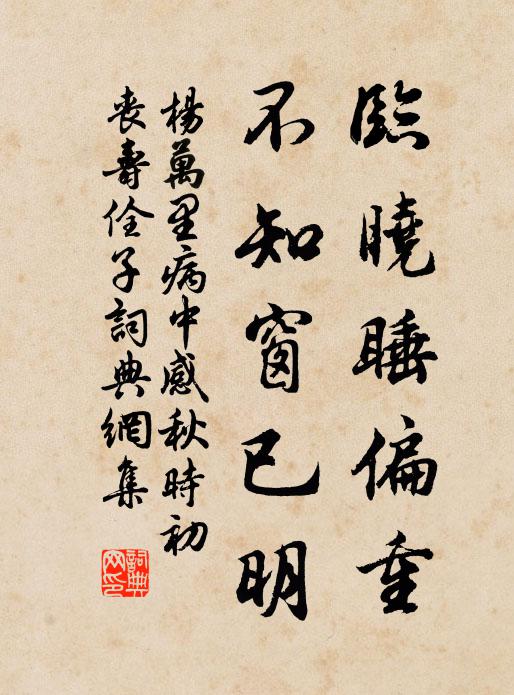 臨曉睡偏重
不知窗已明
楊萬里病中感秋時初
喪壽佺子詞典網集
詞典
网印